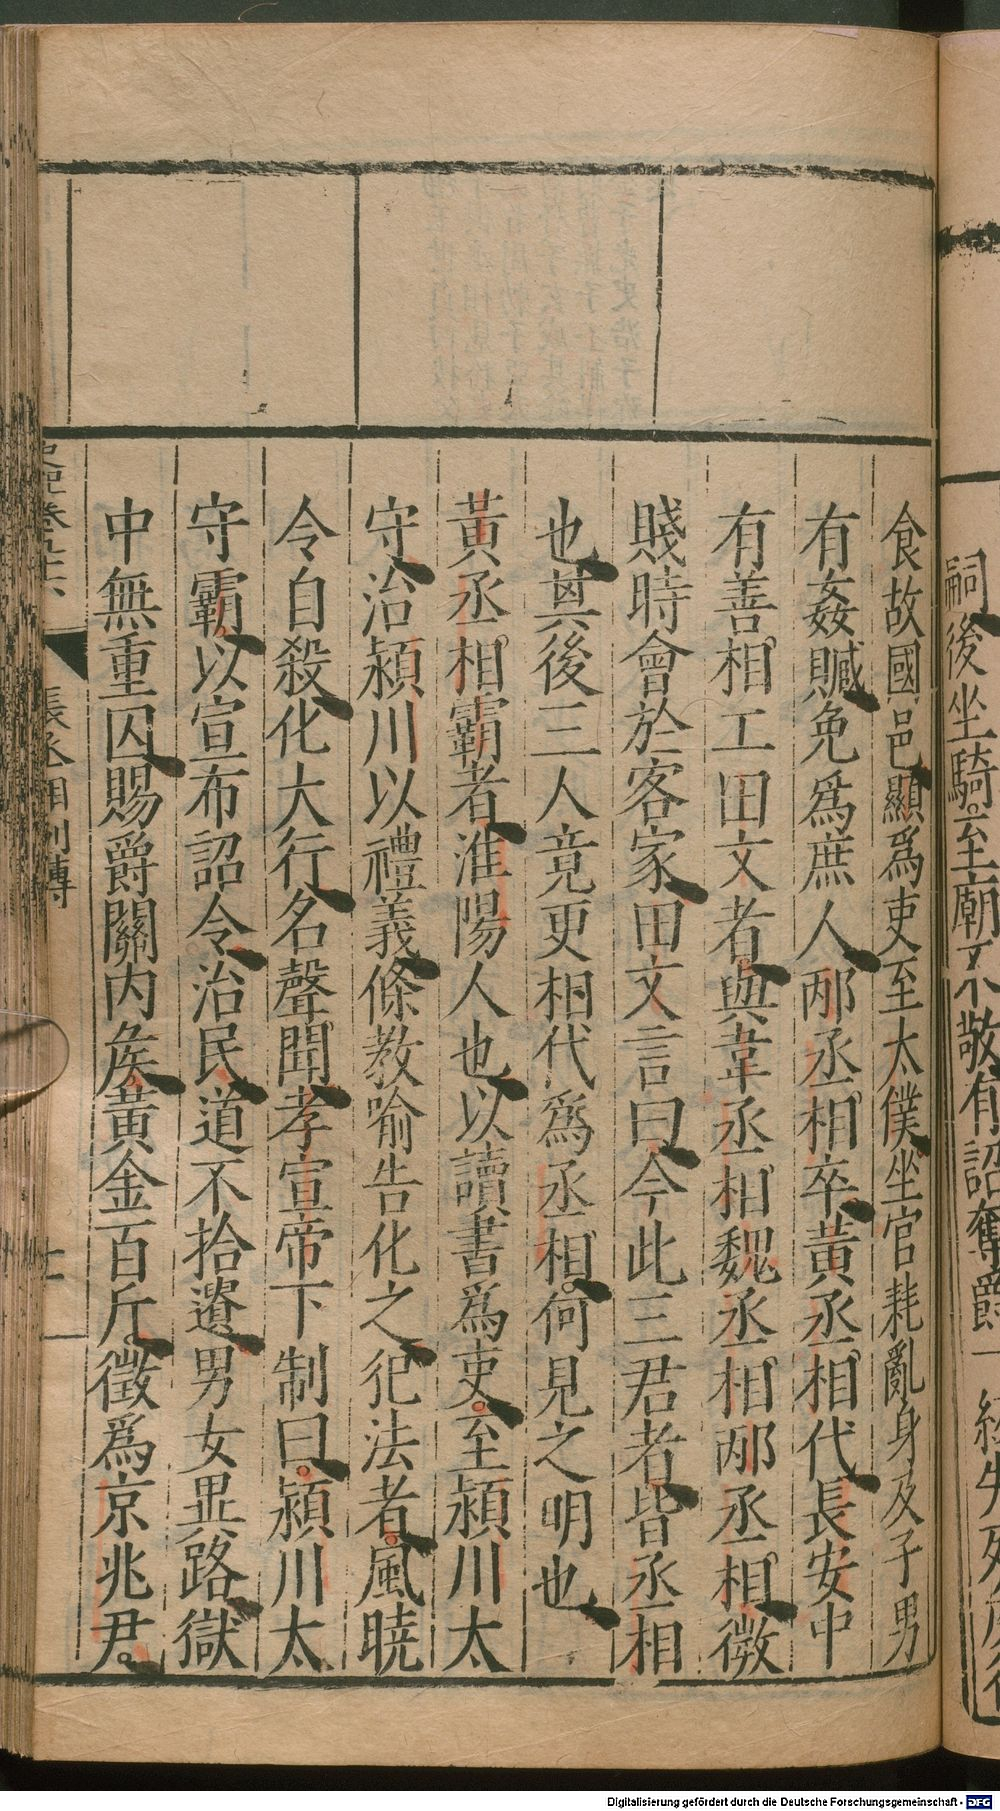 嗣後坐騎至廟不敬有詔奪爵一級失列侯得
食故國邑顯爲吏至太僕坐官耗亂身及子男
有姦贓免爲庶人邴丞相卒黃丞相代長安中
有善相工田文者與韋丞相魏丞相邴丞相微
賤時會於客家田文言曰今此三君者皆丞相
也其後三人竟更相代爲丞相何見之明也
黃丞相霸者淮陽人也以讀書爲吏至潁川太
守治潁川以禮義條教喻告化之犯法者風曉
令自殺化大行名聲聞孝宣帝下制曰潁川太
守霸以宣布詔令治民道不拾遺男女異路獄
中無重囚賜爵關內矦黃金百斤徵爲京兆君
史記卷九十六 張丞相列傳 十一
Digitalisierung gefördert durch die Deutsche Forschungsgemeinschaft - DFG